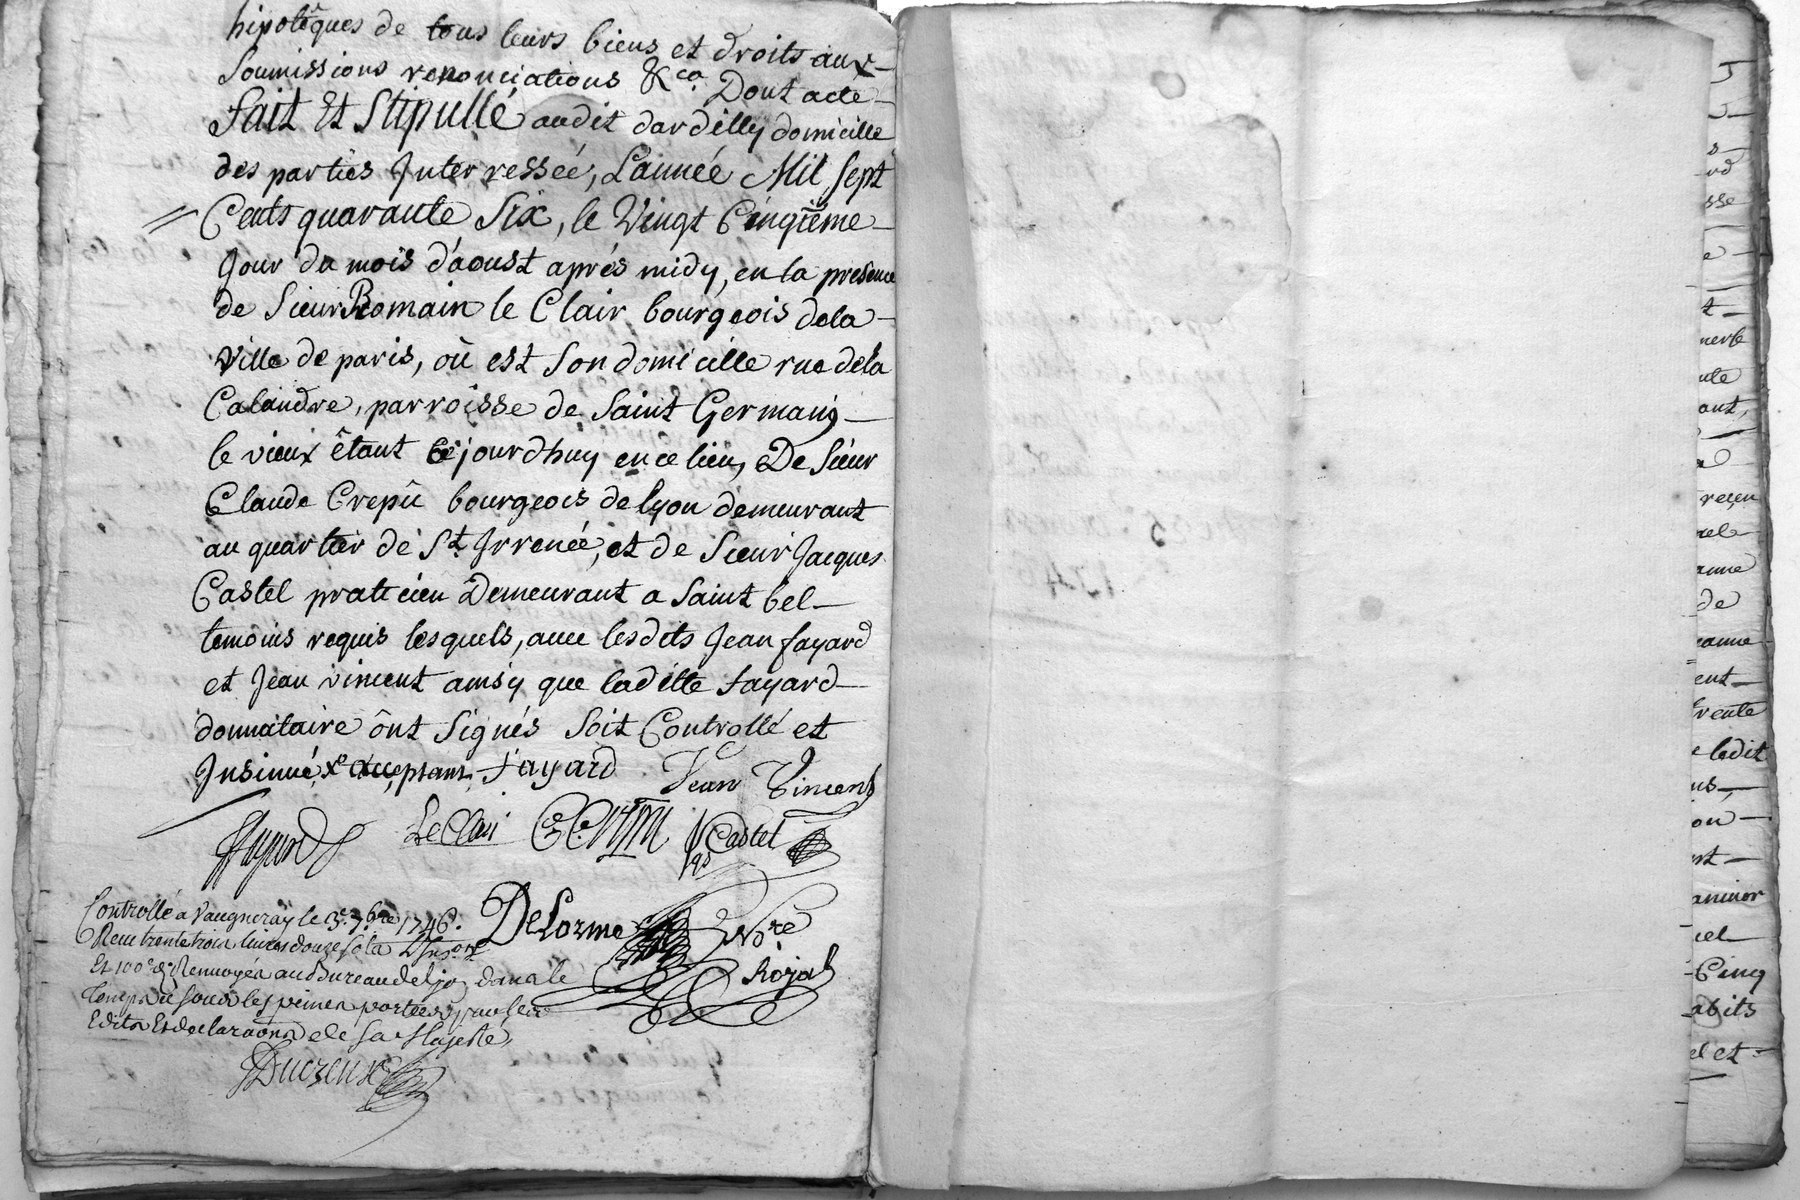 hipotêques de tous leurs biens et droits aux
Soumissions renonciations &ca. Dont acte
fait Et Stipullé audit dardilly domicille
des partiês Interressée, L'année Mil Sept
Cents quarante Six, le Vingt Cinqiême
Jour du mois d'aoust aprés midy, en la presence
de Sieur Romain le Clair bourgeois dela
ville de paris, où est Son domicille rue dela
Calandre, parroisse de Saint Germain
le vieux êtant cejourdhuy en ce lieu, De Sieur
Claude Crepû bourgeois de lyon demeurant
au quartier de St. Irrenée, et de Sieur Jacques
Castel praticien Demeurant a Saint bel
temoins requis lesquels, avec lesdits Jean fayard
et Jean vincent ainsy que laditte fayard
donnataire ônt Signés Soit Controllé et
Insinué, fayard Jean Vincent
fayard Le Clair Castel
Controllé a Vaugneray le 3e. 7bre 1746.
Receu trente trois livres douze sols
DeLorme Nore
Royal
Et 100e d. Renvoyés au Bureau de Lyon dans le
temps et sous les peines portées par les
Edits Et declaraons de Sa Majesté,
Ducreux
1746
J
rd
sse
e
t
nte
ant,
reçeu
nel
anne
de
eanne
ent
trente
e ledit
us,
on
nt
uel
Cinq
abits
el et